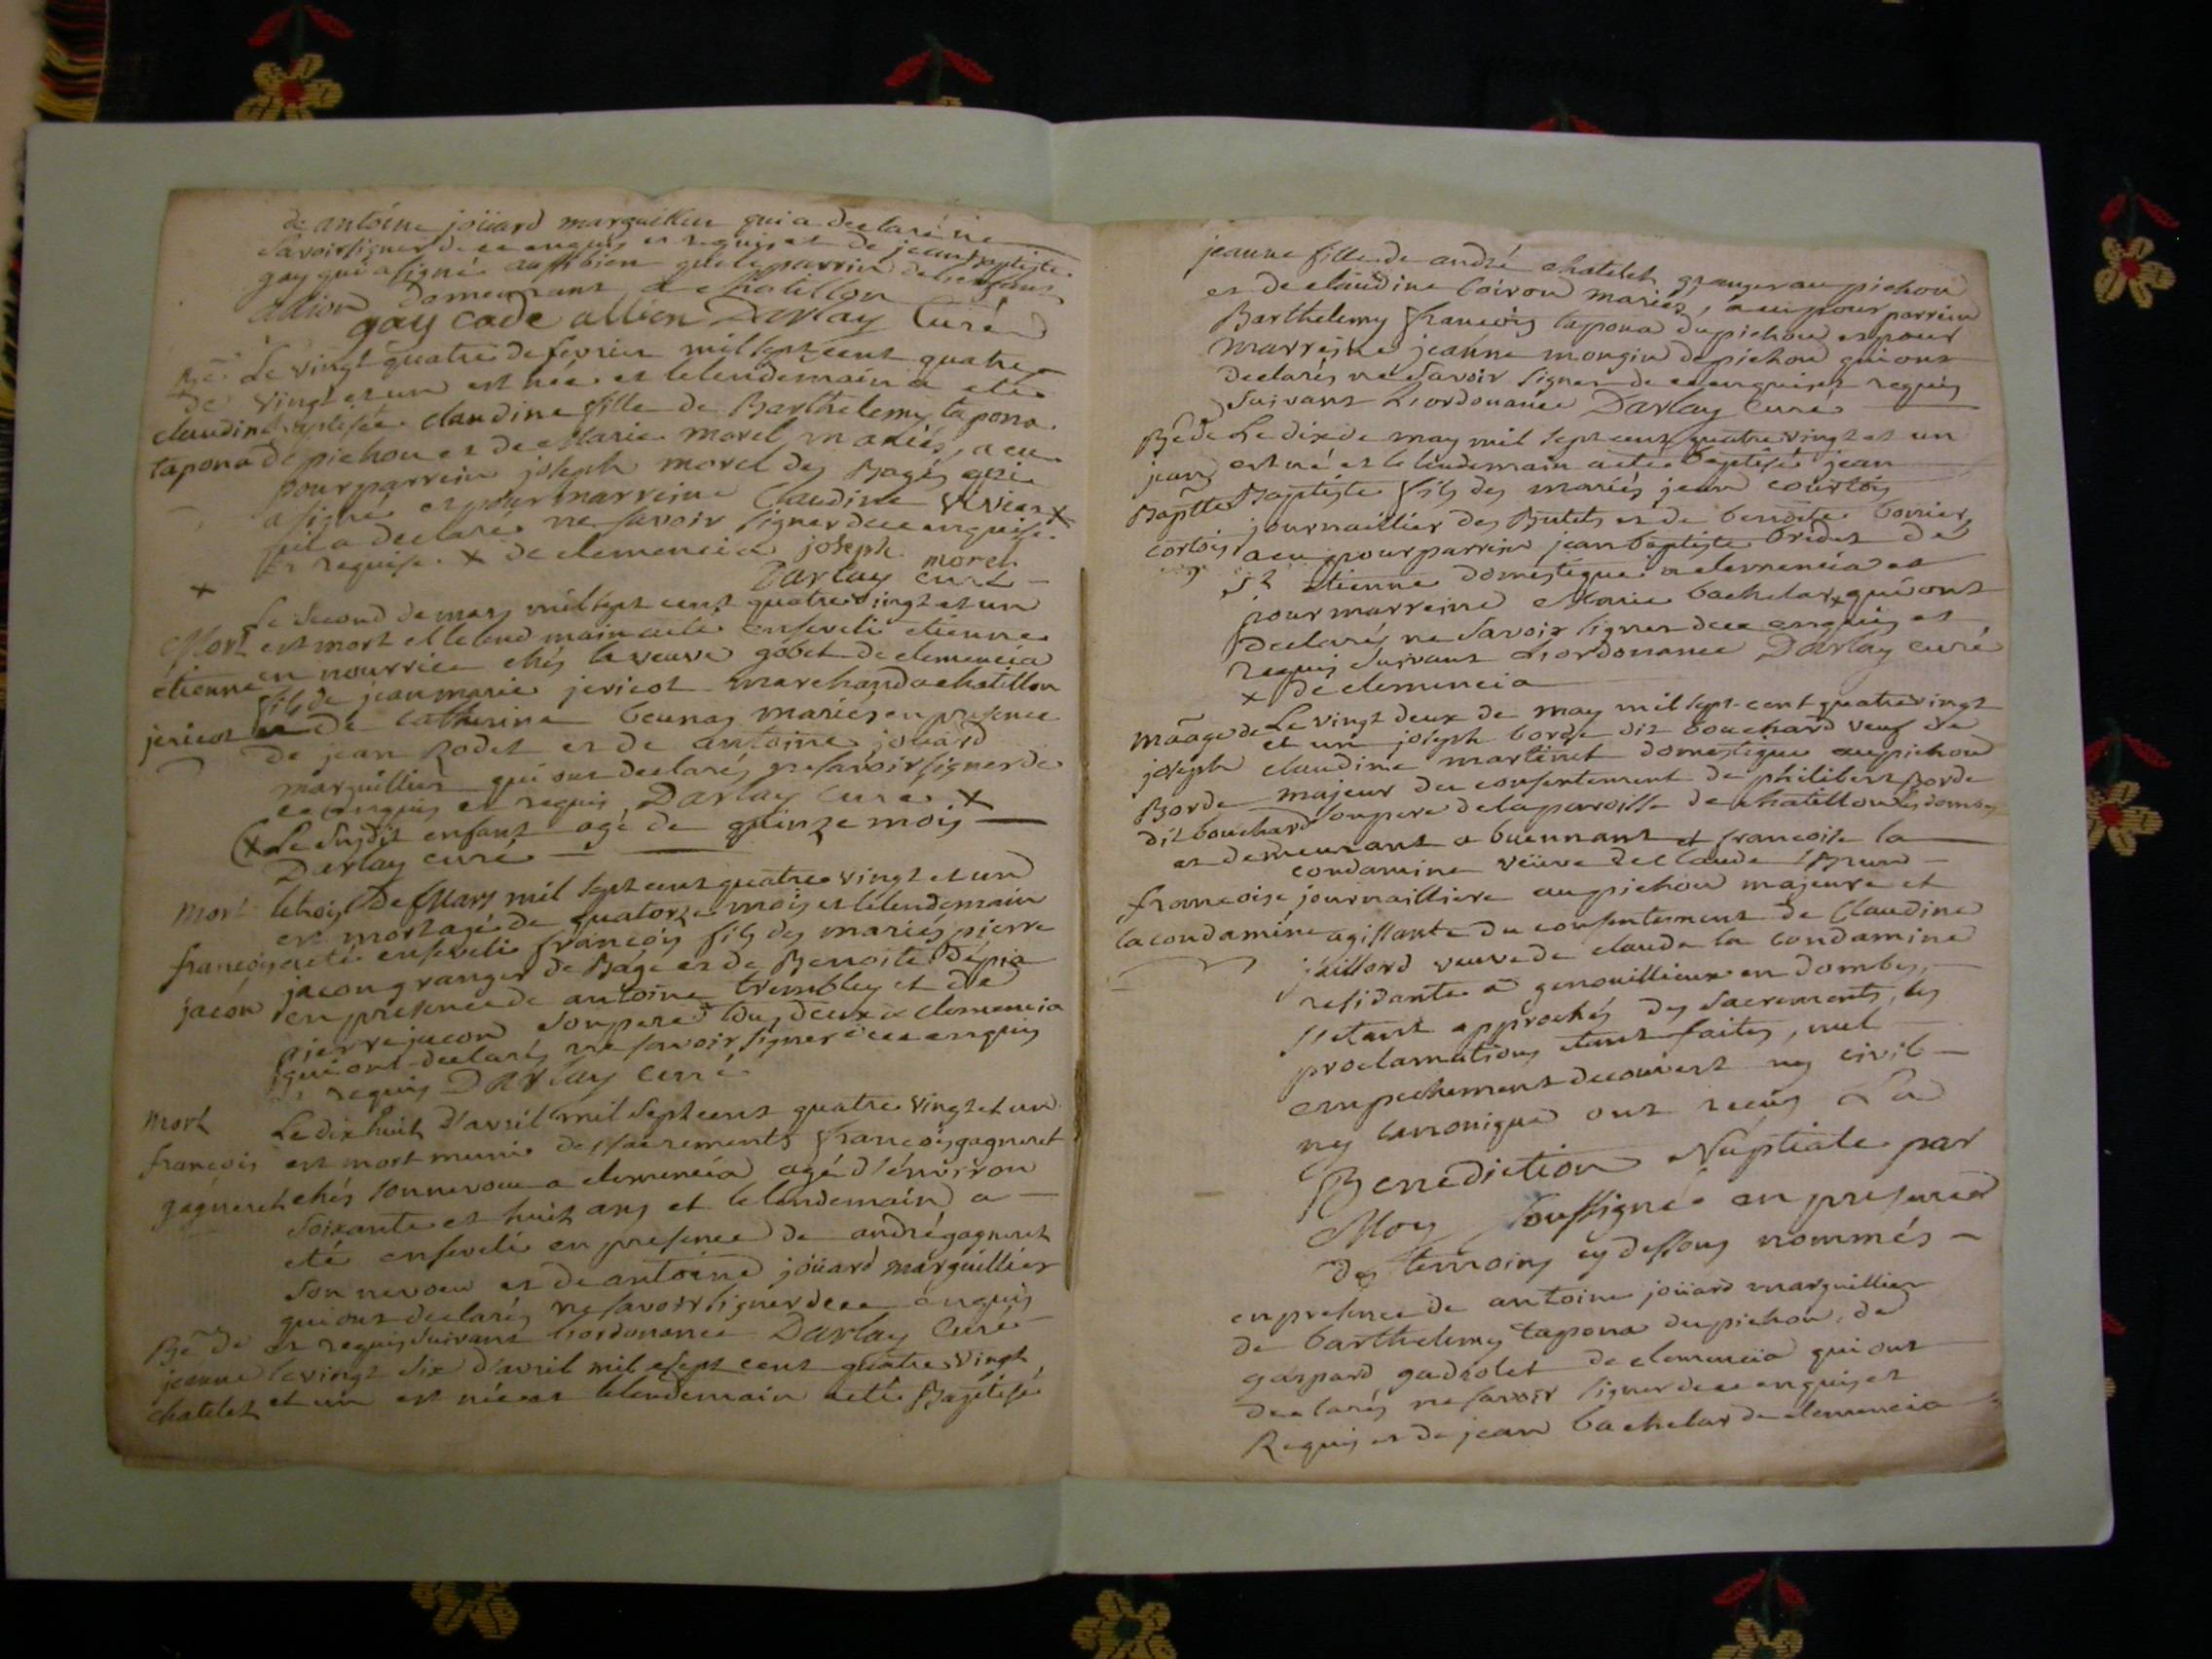 de antoine joüard marguillier qui a declaré ne
savoir signer de ce enquis et requis et de jean baptiste
gay qui a signé aussi bien que le parrin de l'enfant
allion demeurant a chatillon
gay cade allion Darlay Curé
Bge Le vingt quatre de fevrier mil sept cent quatre
de vingt et un est née et le lendemain a eté
claudine baptisée claudine fille de Barthelemy tapona
tapona de pichou et de Marie morel mariés, a eu
pour parrein joseph morel des Bages qui
a signé et pour marreine Claudine vivier x
qui a declaré ne savoir signer de ce enquise
et requise. x de clemencia joseph morel
Darlay curé
x
Le second de mars mil sept cent quatre vingt et un
Mort est mort et le lendmain a eté enseveli etienne
etienne en nourrice chés la veuve gobet de clemencia
fils de jean marie jericot marchand a chatillon
jericot et de catherine beunas mariés en presence
de jean Rodet et de antoine joüard
marguillier qui ont declarés ne savoir signer de
ce enquis et requis Darlay curé x
(x Le susdit enfant agé de quinze mois
Darlay curé
Mort le trois De Mars mil sept cent quatre vingt et un
est mort agé de quatorze mois et le lendemain
françois a eté enseveli françois fils des mariés pierre
jacon jacon granger de Bage et de Benoite Depia
en presence de antoine trembley et de
pierre jacon son pere tous deux de clemencia
qui ont declarés ne savoir signer de ce enquis
et requis Darlay curé
Mort Le dix huit d'avril mil sept cent quatre vingt et un
francois est mort muni des sacrements françois gagneret
gagneret chés son neveu a clemencia agé d'environ
soixante et huit ans et le lendemain a
eté enseveli en presence de andré gagneret
son neveu et de antoine joüard marguillier
qui ont declarés ne savoir signer de ce enquis
et requis suivant l'ordonance Darlay Curé
Bge de
jeanne le vingt six d'avril mil sept cent quatre vingt
chatelet et un est née et le lendemain a eté Baptisé
jeanne fille de andré chatelet granger au pichou
et de claudine loiron mariés, a eu pour parrein
Barthelemy françois tapona du pichou et pour
marreine jeanne mongin de pichou qui ont
declarés ne savoir signer de ce enquis et requis
suivant L'ordonance Darlay curé
Bge de Le dix de may mil sept cent quatre vingt et un
jean est né et le lendemain a eté baptisé jean
Baptte Baptiste fils des mariés jean courtois
cortois journaillier des Butets et de benoite bourier,
a eu pour parrein jean baptiste bridet de
St etienne domestique a clemencia et
pour marreine Marie bachelar x qui ont
declarés ne savoir signer de ce enquis et
requis suivant L'ordonance Darlay curé
x de clemencia
māage de Le vingt deux de may mil sept cent quatre vingt
et un joseph borde dit bouchard veuf de
joseph claudine martinet domestique au pichou
Borde majeur du consentement de philibert Borde
dit bouchard son pere de la paroisse de chatillon les dombes
et demeurant a buennant et francoise la
condamine veüve de claude Brun
francoise journailliere au pichou majeure et
la condamine agissante du consentement de Claudine
jaillard veuve de claude la condamine
residante a genouillieux en Dombes,
s'etant approchés des sacrements, les
proclamations etant faites, nul
empechement decouvert ny civil
ny canonique ont reçus La
Benediction Nuptiale par
Moy soussigné en presence
des temoins cy dessous nommés
en presence de antoine joüard marguillier
de barthelemy tapona du pichou, de
gaspard gadrolet de clemencia qui ont
declarés ne savoir signer de ce enquis et
Requis et de jean bachelar de clemencia